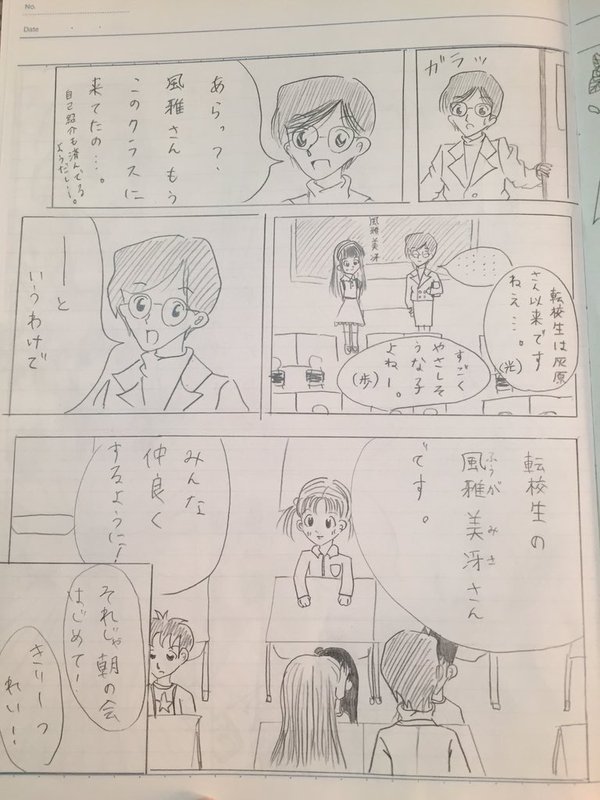 No.
Date
ガラッ
あらっ?、
風雅さんもう
このクラスに
来てたの…。
自己紹介も済んでる
ようだし…。
風雅美冴
転校生は灰原
さん以来です
ねぇ…。
(光)
すごく
やさしそ
うな子
よねー。
(歩)
——と
いうわけで
転校生の
風雅美冴さん
ふうが みさ
です。
みんな
仲良く
するように!
それじゃ朝の会
はじめてー!
きりーつ
れい!